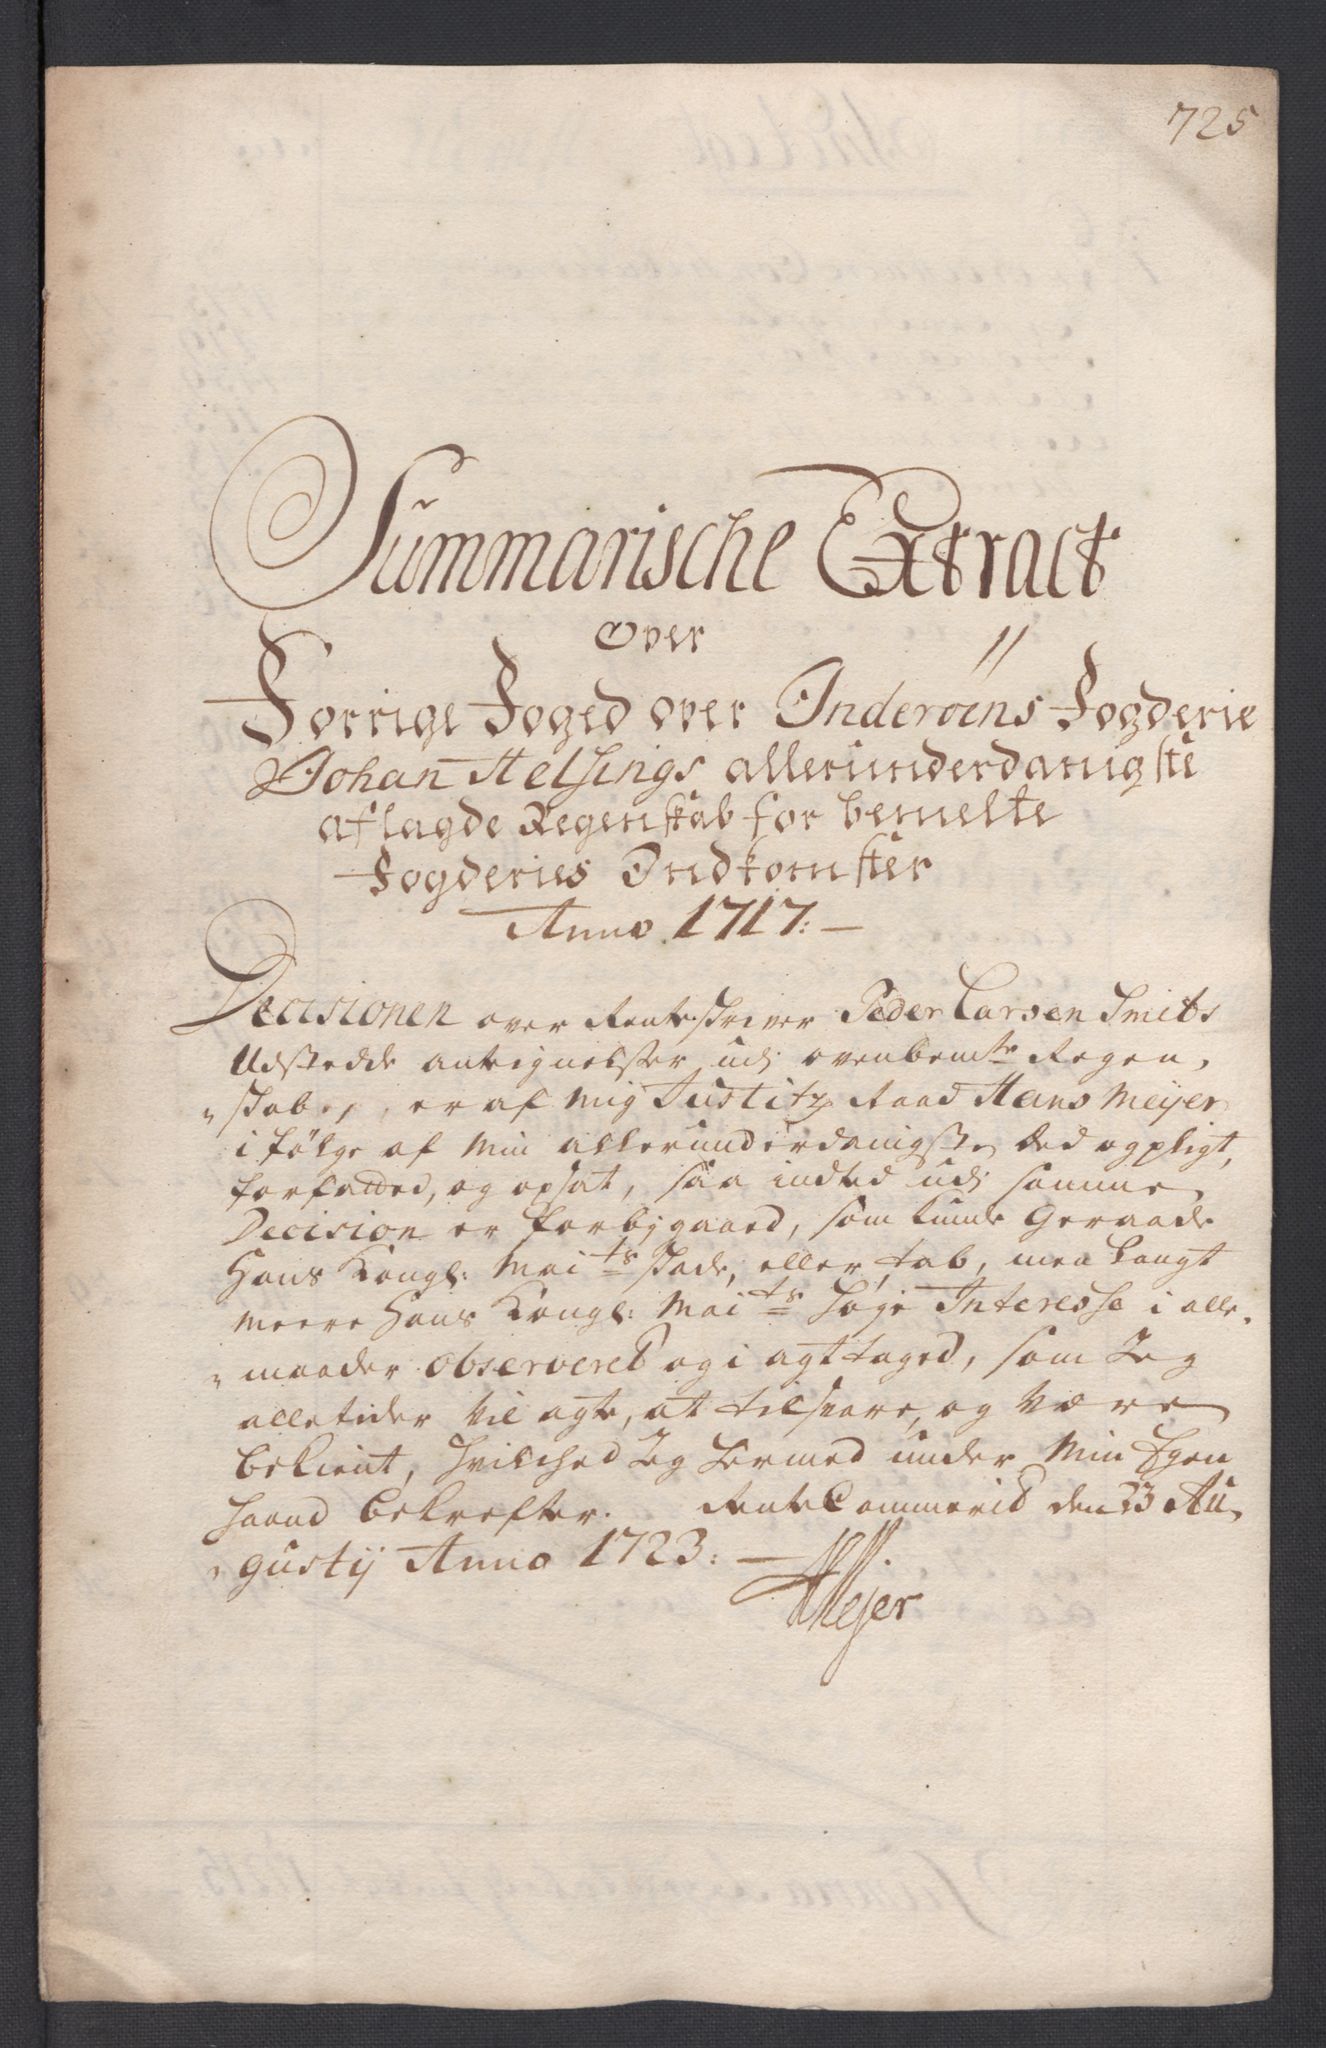 725
Summarische Extract
over
Forrige Foged over Inderöens Fogderie
Johan Helsings allerunderdanigste
aflagde Regenskab for bemelte
Fogderies Indkomster
Anno 1717:
Decisionen over Renteskriver Peder Larsen Smits
Udstedde antegnelsser udj ovenbemte Regen,
"skaber, er af Mig Justitz Raad Hans Meyer
i følge af Min allerunderdanigste Eed og pligt,
forfatted, og opsat, saa indted udj samme
Decision er forbjgaaed, som kunde Geraade
Hans Kongl: Maits skade, eller tab, men langt
meere Hans Kongl: Maits høje Interesse i alle
"maader observeret og i agt taged, som Jeg
alletider vil agte, at tilsvare, og være
bekient, hvilched Jeg hermed under Min Egen
haand bekrefter. RenteCammerit den 23 Au,
"gustij Anno 1723:
HMejer